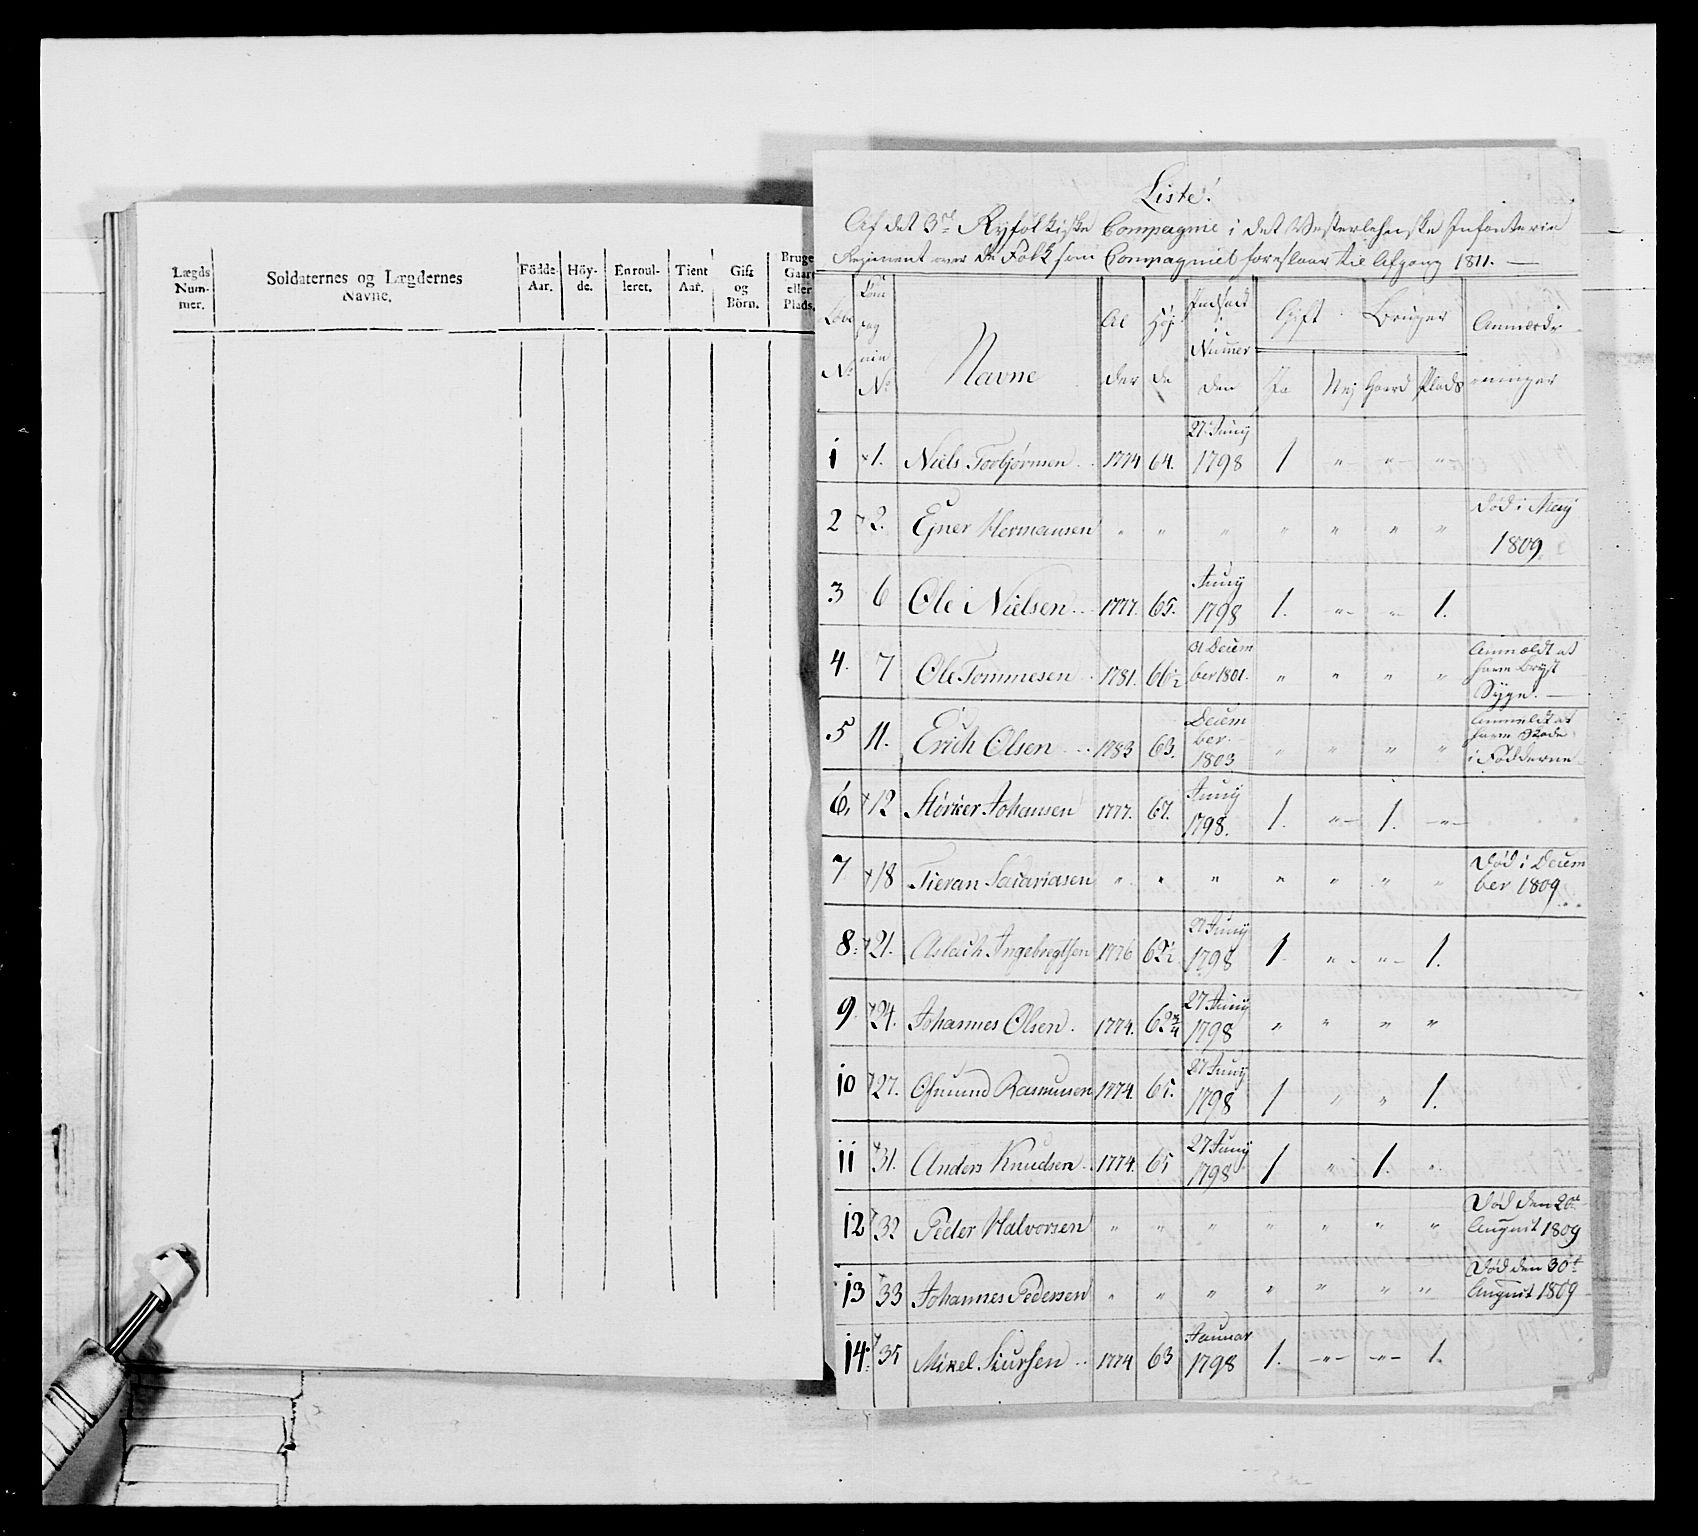 Lægds Num- mer.
Soldaternes og Lægdernes Navne.
Födde Aar.
Höy- de.
Enroul- leret.
Tient Aar.
Gift og Börn.
Bruge Gaard eller Plads.
Liste!
Af det 3die Ryfölkiske Compagnie i det Vesterlehnske Infanterie
Regiment over de Folk som Compagniet foreslaar til Afgang 1811.
No
Com pag nie No
Navne
Al der
Höj de
Indsat i Numer den
Gift
Bruger
Anmerk ninger
Ja
Nej
Gaard
Plads
1 1. Niels Torbjørnsen 1774 64. 27 Juny 1798 1 " " "
2 2. Ejner Hermansen " " " " " " " Död i May 1809
3 6 Ole Nielsen 1777. 65. Juny 1798 1. " " 1.
4. 7 Ole Tommesen 1781. 66½ 31 Decem ber 1801. " " " " Anmeldt at have Bryst Syge.
5 11. Erich Olsen 1783 63. Decem ber 1803 " " " " Anmeldt at have Skade i Födderne
6. 12 Störker Johansen 1777. 67. Juny 1798. 1. " 1. "
7 18 Tieran Sacariasen " " " " " " " Död i Decem ber 1809
8. 21. Aslach Ingebregtsen 1776 62½ 27 Juny 1798 1 " " 1.
9. 24. Johannes Olsen. 1774. 62¾ 27 Juny 1798 " " " "
10 27. Osmund Rasmusen 1774. 65. 27 Juny 1798 1 " " 1.
11 31. Anders Knudsen 1774. 65 27 Juny 1798 1 " 1. "
12 32 Peder Halvorsen " " " " " " " Död den 20de August 1809
13 33 Johannes Pedersen " " " " " " " Död den 30te August 1809
14. 35 Mikel Siursen 1774 63 Januar 1798 1. " " 1.